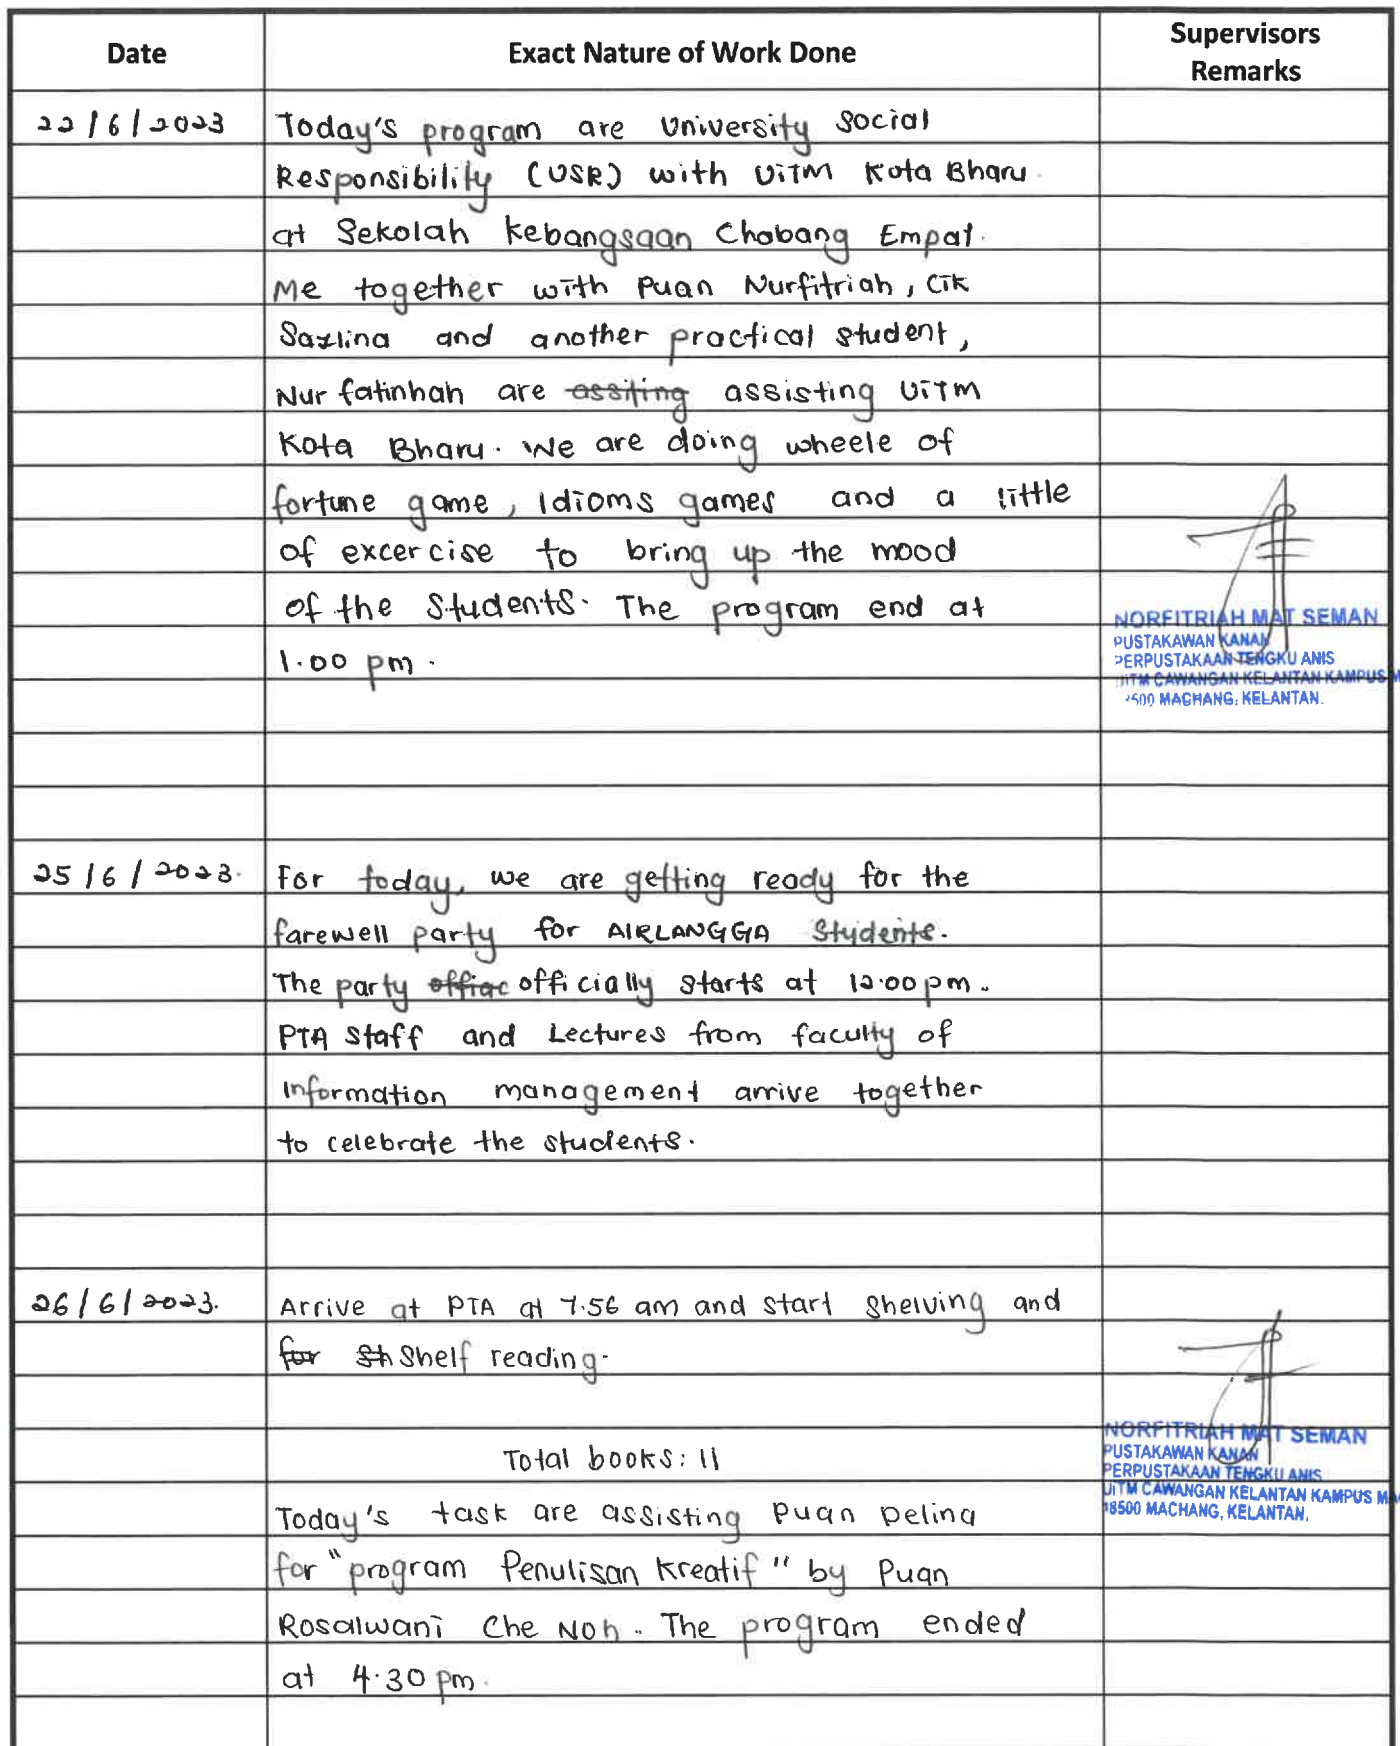 Date Exact Nature of Work Done Supervisors Remarks
22/6/2023 Today's program are University Social
Responsibility (USR) with UiTM Kota Bharu.
at Sekolah Kebangsaan Chabang Empat.
Me together with Puan Nurfitriah, Cik
Sazlina and another practical student,
Nur fatinhah are assiting assisting UiTM
Kota Bharu. We are doing wheele of
fortune game, Idioms games and a little
of excercise to bring up the mood
of the Students. The program end at
1.00 pm.
NORFITRIAH MAT SEMAN
PUSTAKAWAN KANAN
PERPUSTAKAAN TENGKU ANIS
UITM CAWANGAN KELANTAN KAMPUS M
500 MACHANG, KELANTAN.
25/6/2023. For today, we are getting ready for the
farewell party for AIRLANGGA Students.
The party offiac officially starts at 12.00 pm.
PTA Staff and Lectures from faculty of
Information management arrive together
to celebrate the students.
26/6/2023. Arrive at PTA at 7.56 am and start Shelving and
for Sh Shelf reading.
Total books: 11
Today's task are assisting Puan Delina
for "program Penulisan Kreatif" by Puan
Rosalwani Che Noh. The program ended
at 4.30 pm.
NORFITRIAH MAT SEMAN
PUSTAKAWAN KANAN
PERPUSTAKAAN TENGKU ANIS
UITM CAWANGAN KELANTAN KAMPUS MA
18500 MACHANG, KELANTAN.